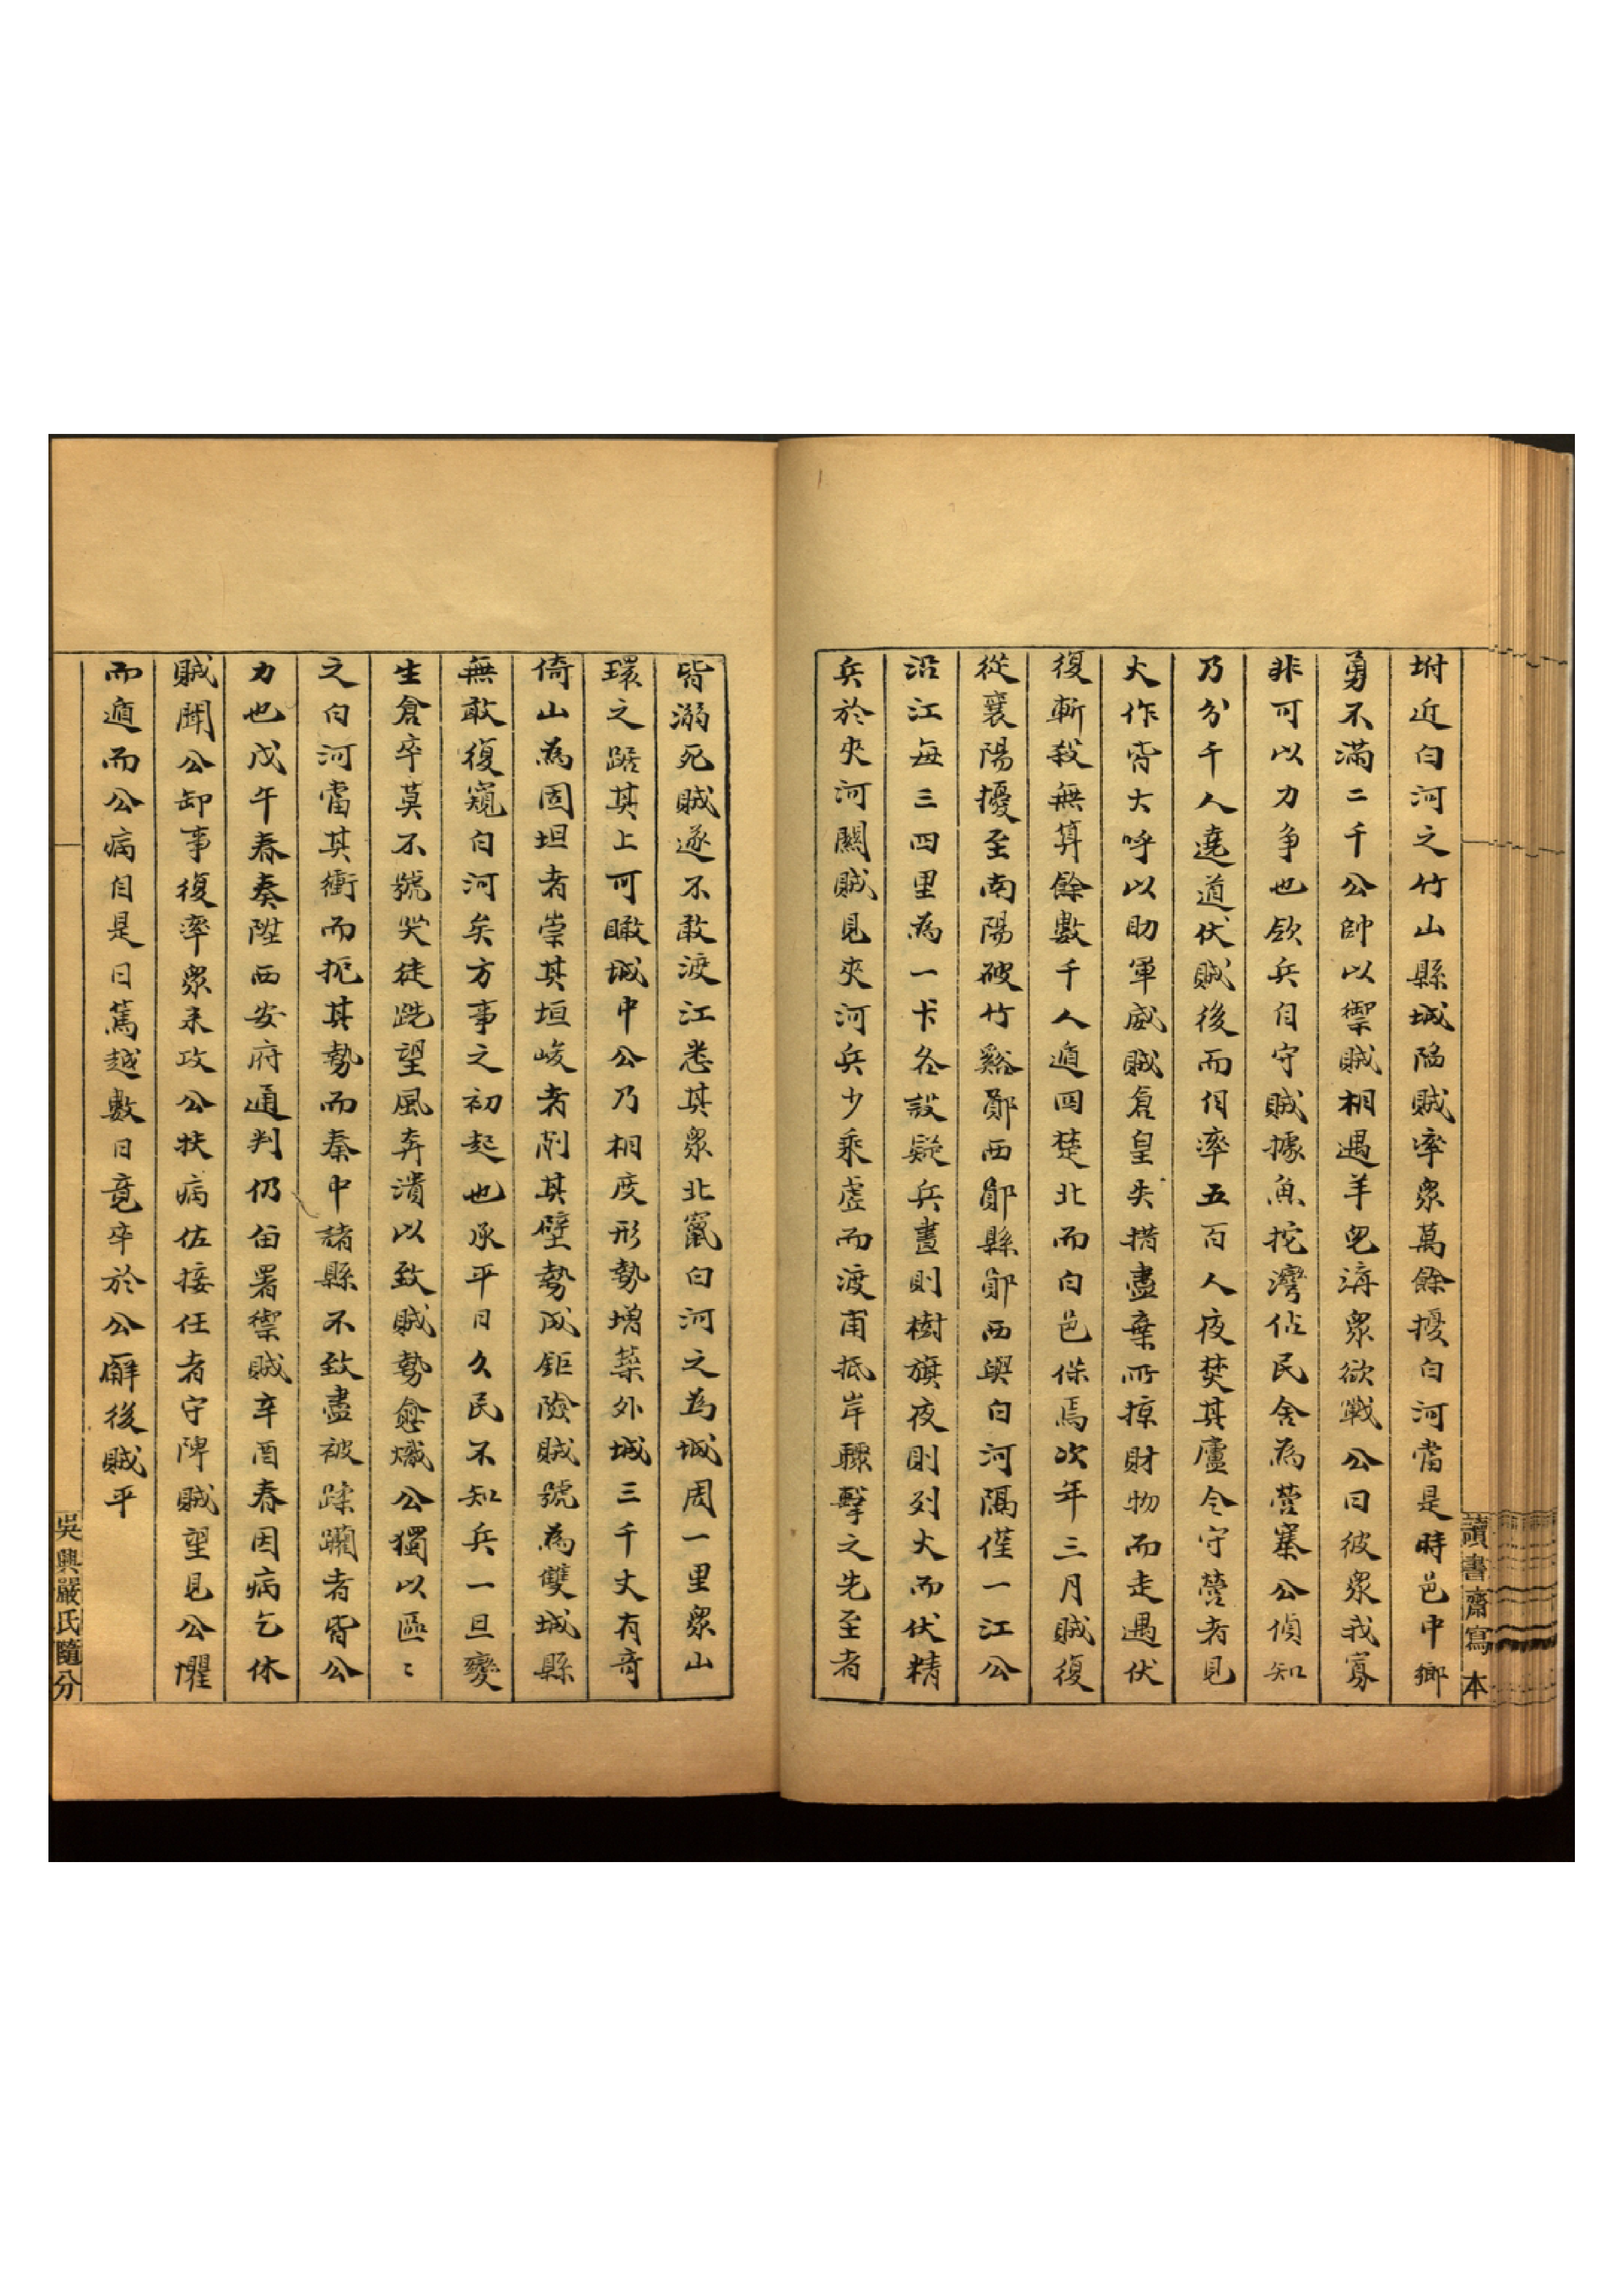 坿近白河之竹山縣城陷賊率衆萬餘擾白河當是時邑中鄉
勇不滿二千公帥以禦賊相遇羊皃溝衆欲戰公曰彼衆我寡
非可以力爭也欲兵自守賊據魚挖灣佔民舍為營寨公偵知
乃分千人遶道伏賊後而自率五百人夜焚其廬令守營者見
火作皆大呼以助軍威賊倉皇失措盡棄所掠財物而走遇伏
復斬殺無算餘數千人遁囘楚北而白邑保焉次年三月賊復
從襄陽擾至南陽破竹谿鄖西鄖縣鄖西與白河隔僅一江公
沿江每三四里為一卡各設疑兵晝則樹旗夜則列火而伏精
兵於夾河關賊見夾河兵少乘虛而渡甫抵岸驟擊之先至者
皆溺死賊遂不敢渡江悉其衆北竄白河之為城周一里衆山
環之踞其上可瞰城中公乃相度形勢增築外城三千丈有奇
倚山為固坦者崇其垣峻者削其壁勢成鉅險賊號為雙城縣
無敢復窺白河矣方事之初起也承平日久民不知兵一旦變
生倉卒莫不號哭徒跣望風奔潰以致賊勢愈熾公獨以區〻
之白河當其衝而扼其勢而秦中諸縣不致盡被蹂躪者皆公
力也戊午春奏陞西安府通判仍留署禦賊辛酉春因病乞休
賊聞公卸事復率衆來攻公扶病佐接任者守陴賊望見公懼
而遁而公病自是日篤越數日竟卒於公廨後賊平
讀書齋寫本
吳興嚴氏隨分